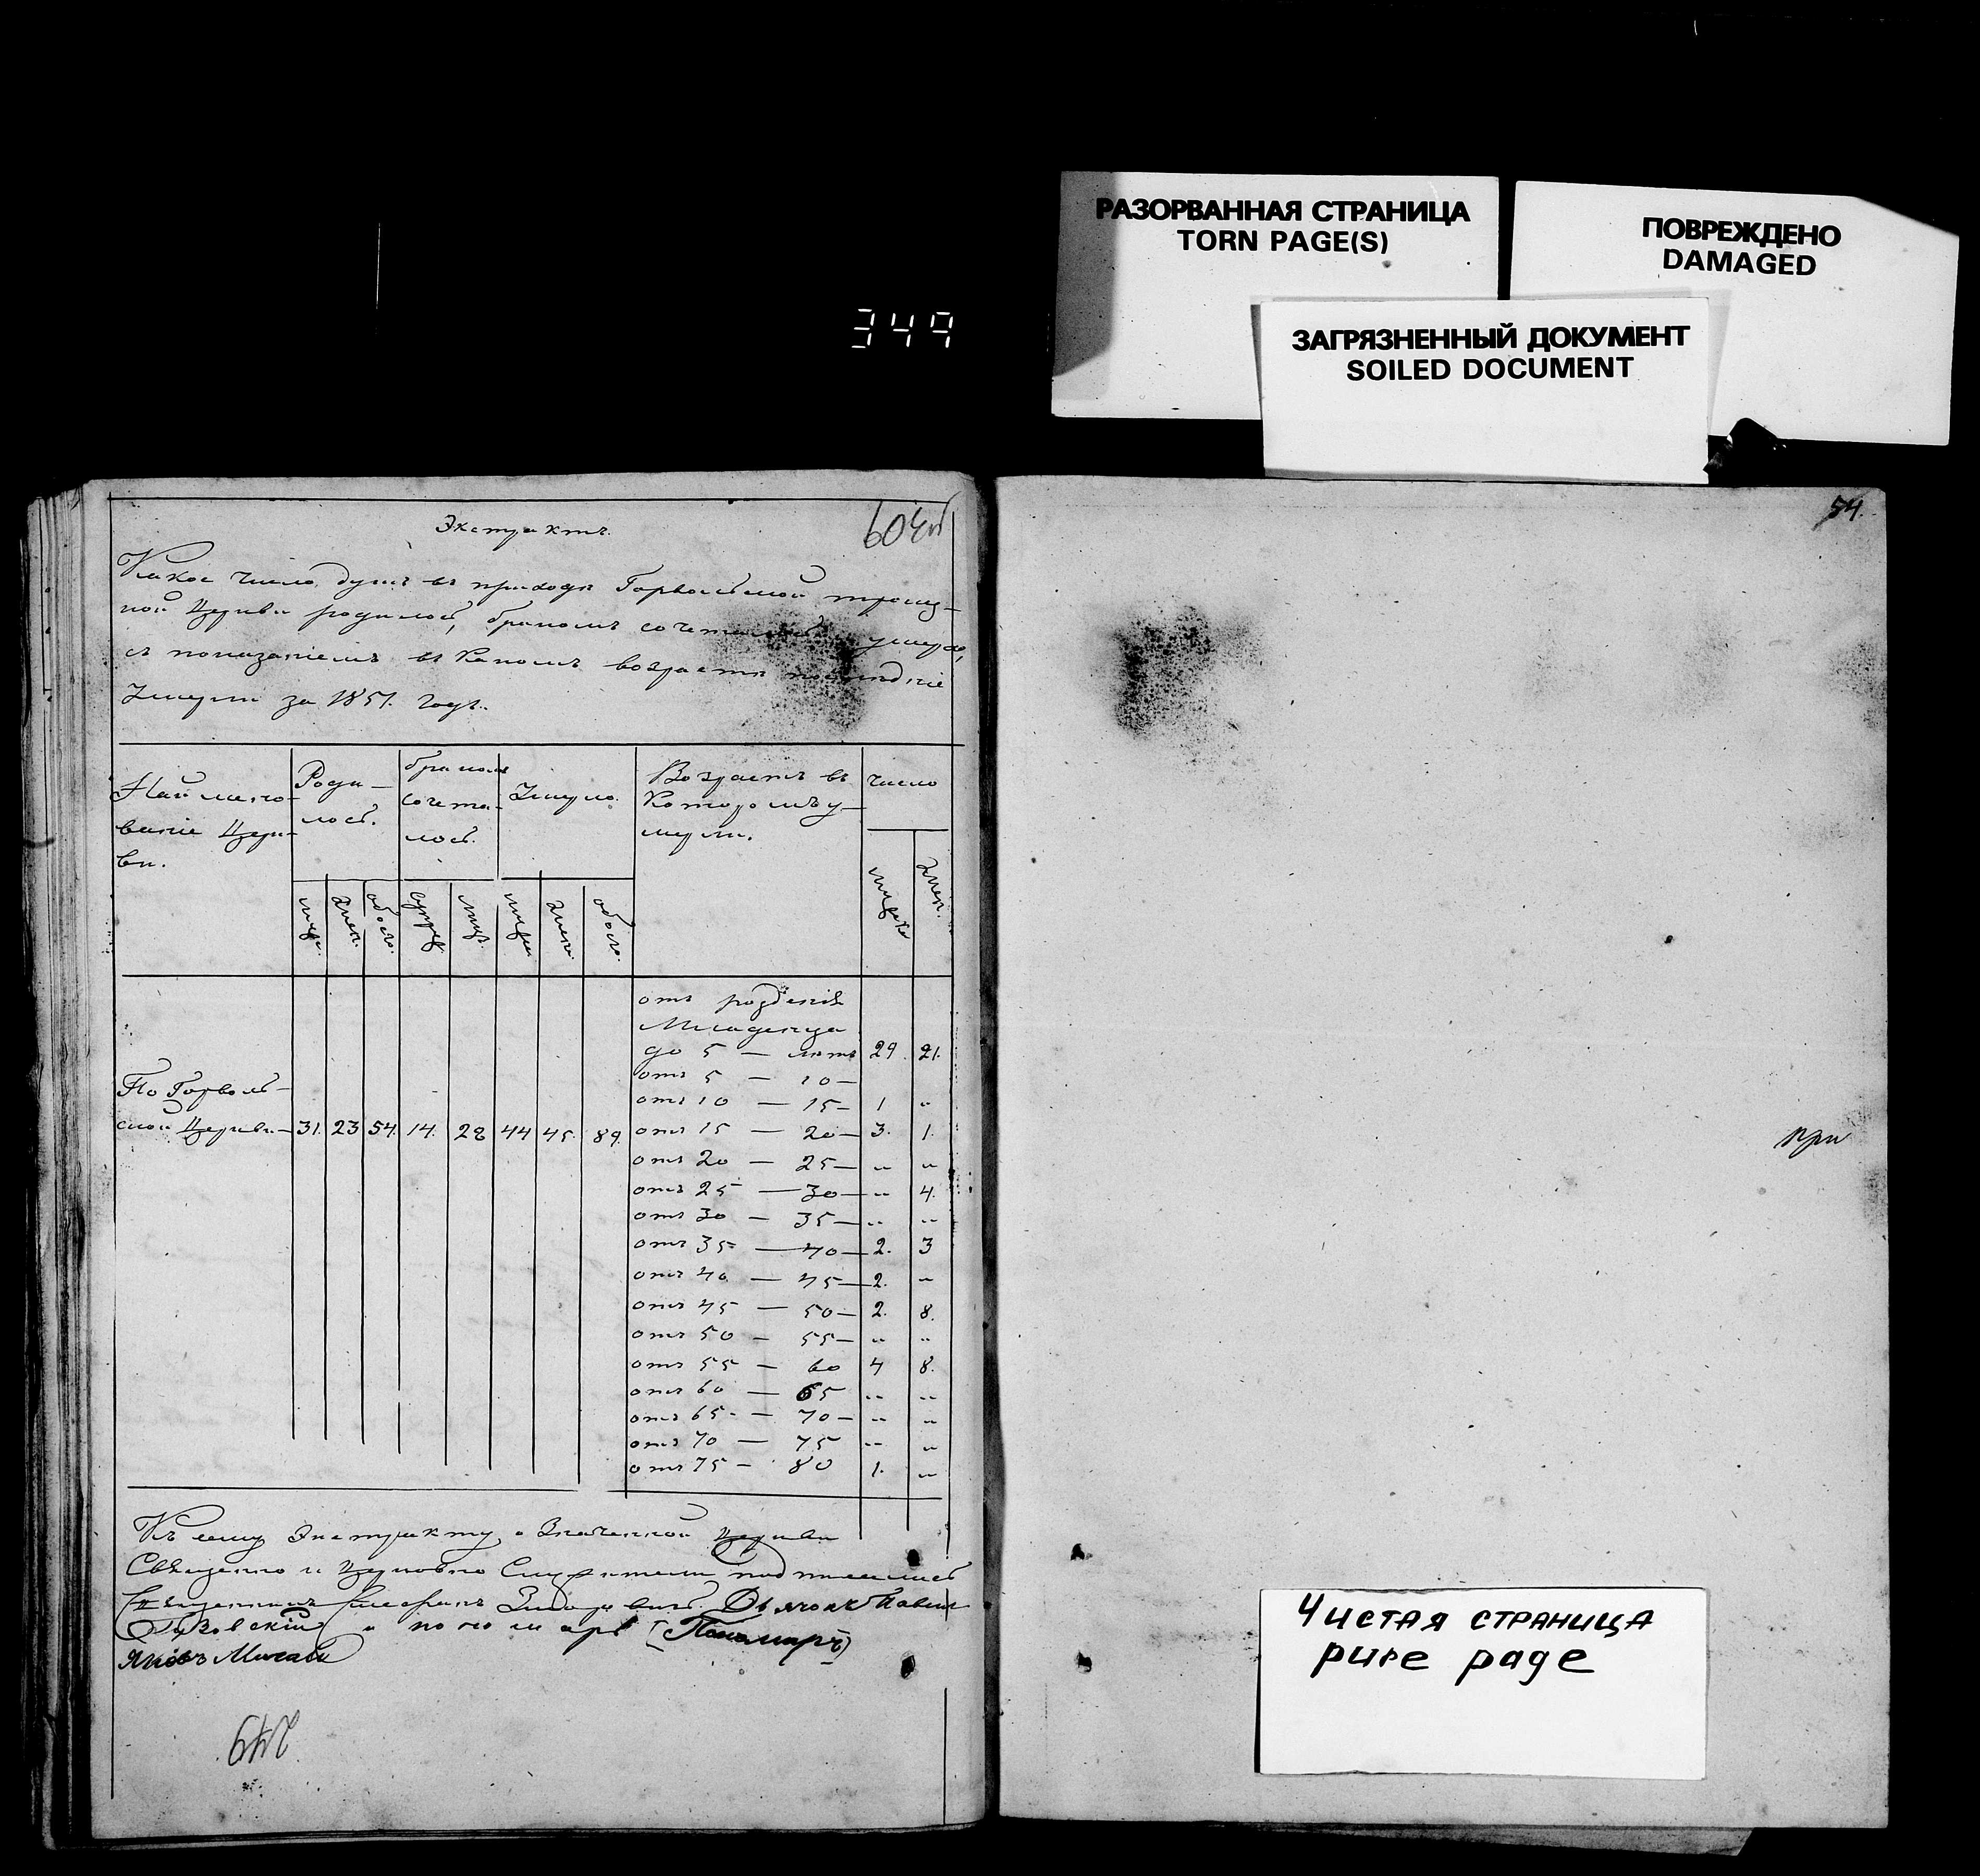 РАЗОРВАННАЯ СТРАНИЦА
TORN PAGE(S)
ПОВРЕЖДЕНО
DAMAGED
ЗАГРЯЗНЕННЫЙ ДОКУМЕНТ
SOILED DOCUMENT
349
Экстрактъ.
Какое число душъ въ приходѣ Горвольской троиц-
ной Церкви родилось, бракомъ сочеталось умерло,
съ показаніемъ въ какомъ возрастѣ послѣдніе
Умерли за 1851. годъ.
Найmено- Роди- бракомъ Умерло. Возрастъ въ число
ваніе Церк- лось. сочета- Которомъ у-
ви. лось. мерли.
муж. жен. обоего. супруж. лицъ. муж. жен. обоего. мужска жен.
отъ рожденія
Младенца
до 5 — лѣтъ 29. 21.
отъ 5 — 10 —
По Горволь- отъ 10 — 15 — 1 "
ской Церкви — 31. 23 54. 14. 28 44 45. 89. отъ 15 — 20 — 3. 1.
отъ 20 — 25 — " "
отъ 25 — 30 — " 4.
отъ 30 — 35 — " "
отъ 35 — 40 — 2. 3
отъ 40 — 45 — 2. "
отъ 45 — 50 — 2. 8.
отъ 50 — 55 — " "
отъ 55 — 60 4 8.
отъ 60 — 65 " "
отъ 65 — 70 — " "
отъ 70 — 75 " "
отъ 75 — 80 1. "
Къ сему Экстракту означенной Церкви
Священно и Церковно Служители подписались
Священникъ Дьячокъ Павелъ
и пономарь (Пономаръ)
Яковъ
249
54.
при
Чистая страница
pure page